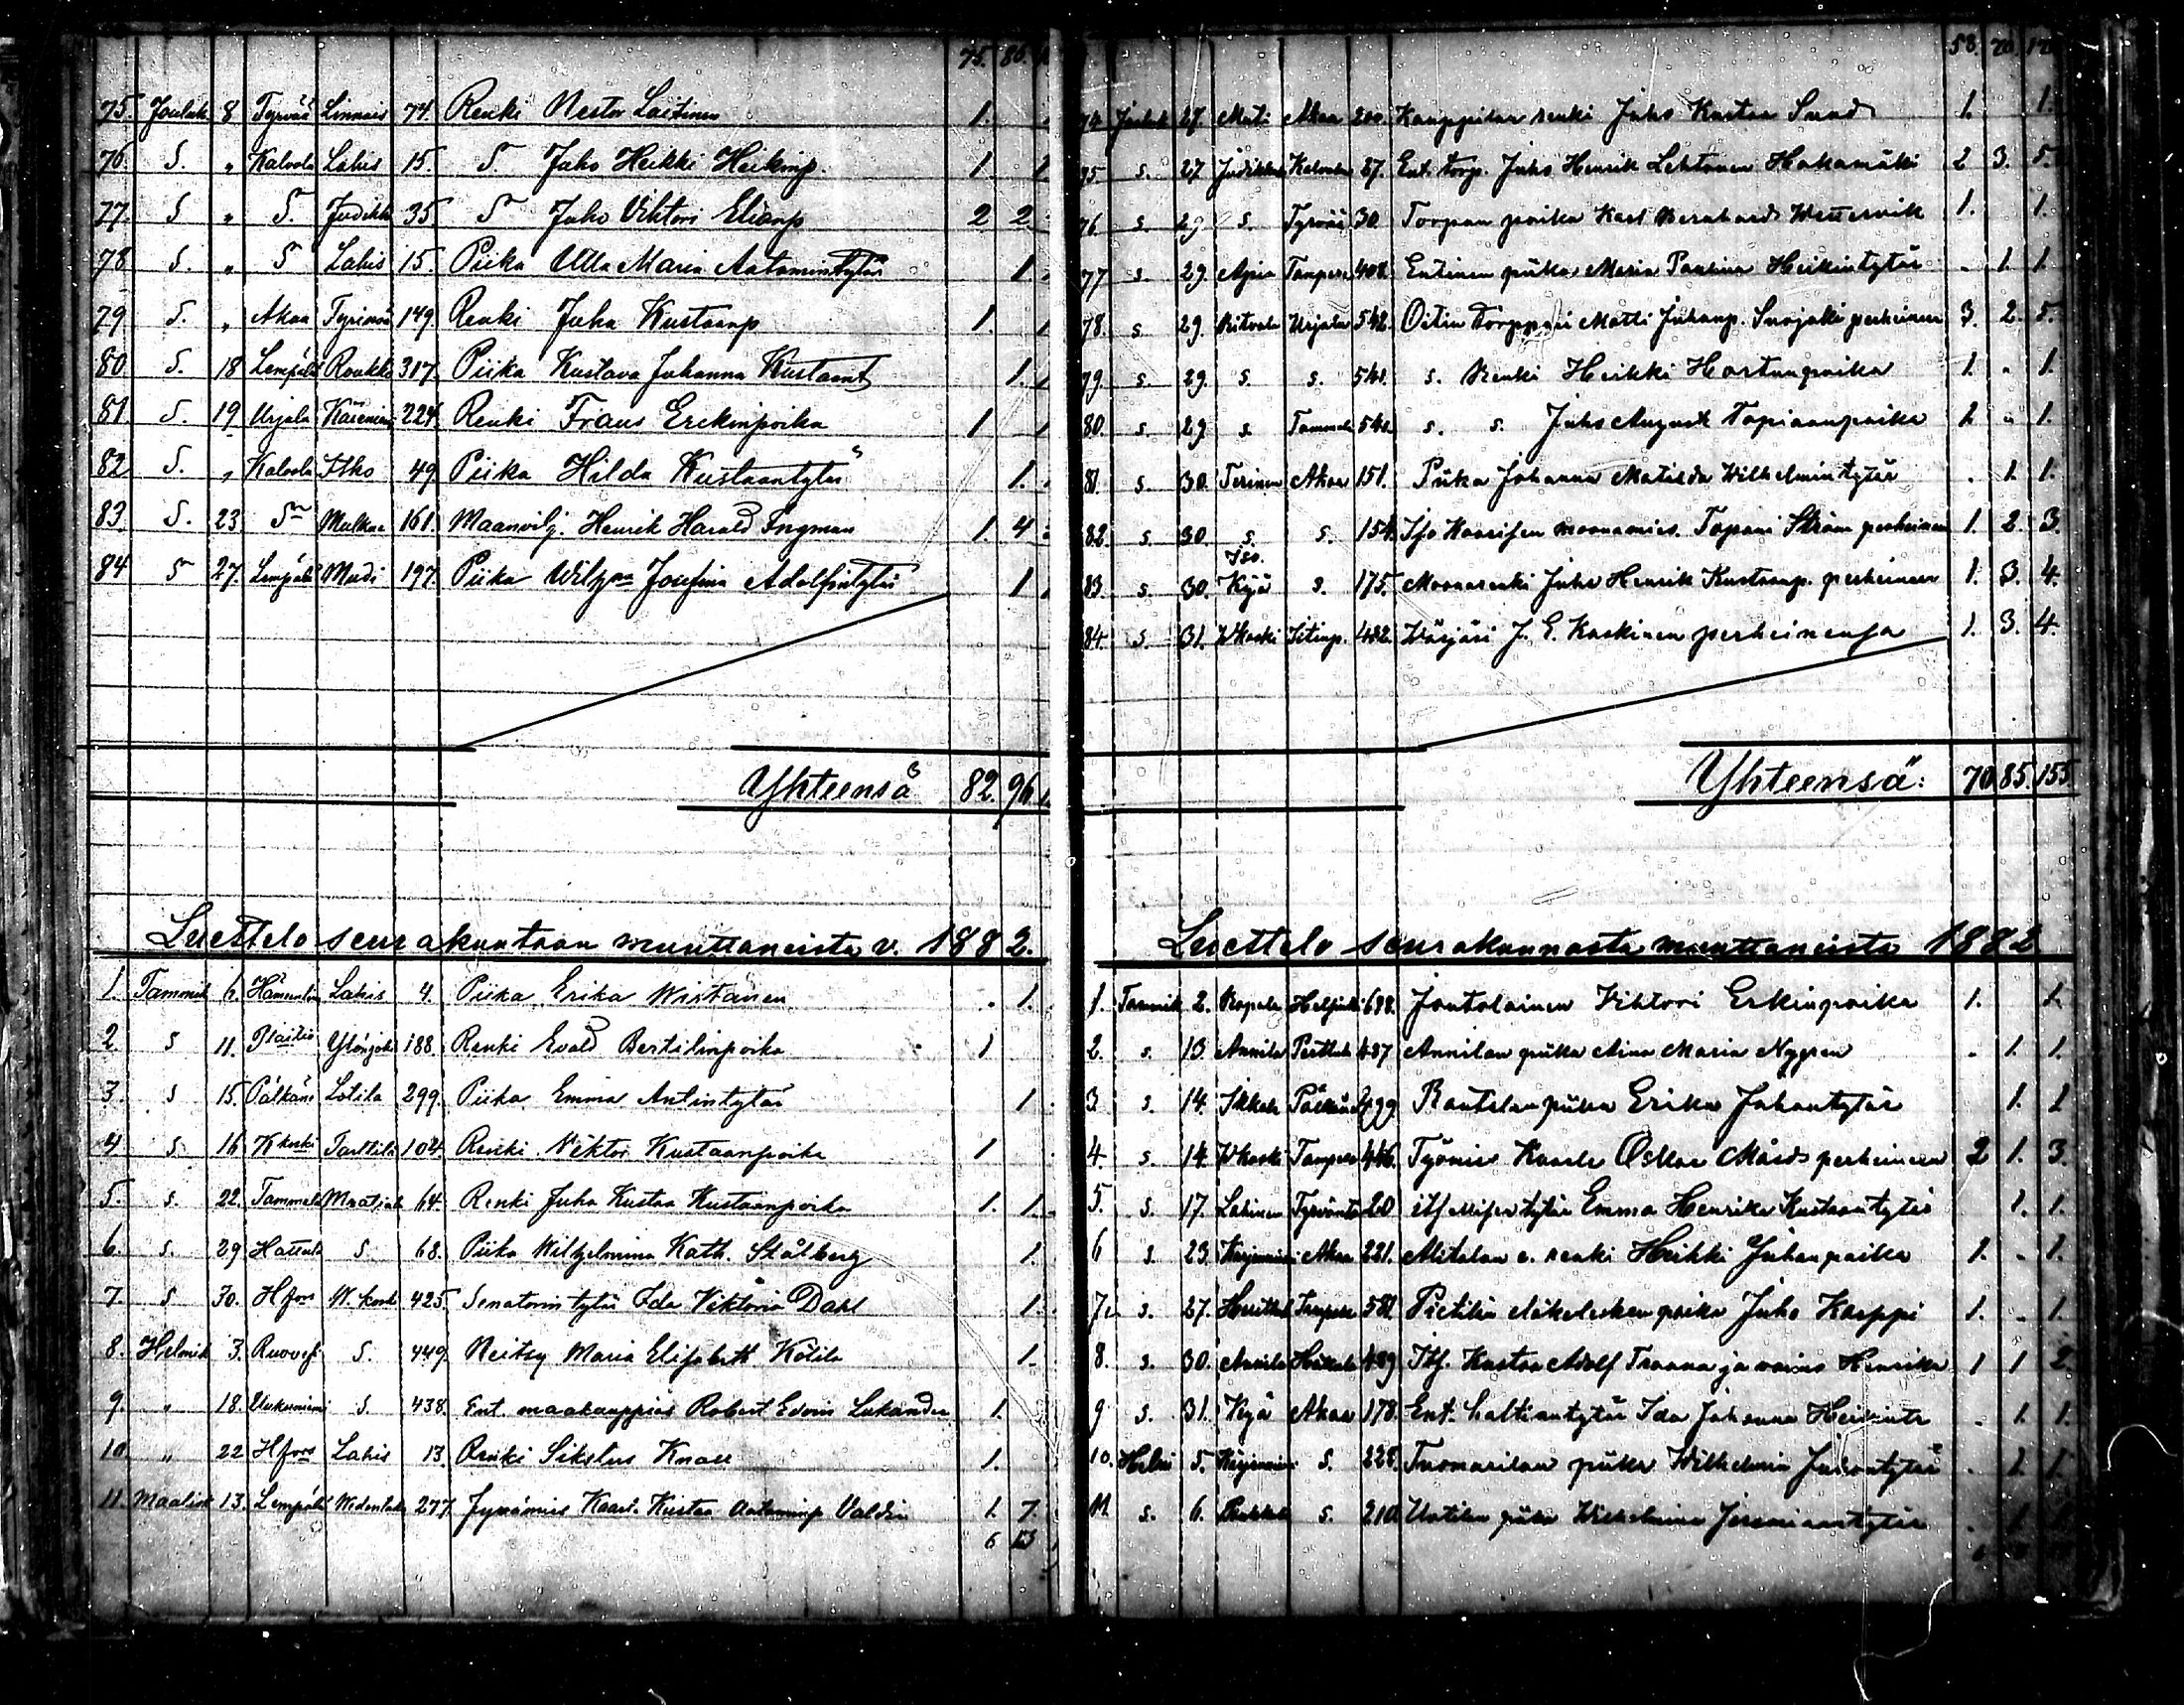 75. 86.
75. Jouluk. 8 Tyrvää Linnais 74. Renki Nestor Laitinen 1.
76. S. " Kalvola Lahis 15. S. Juho Heikki Heikinp. 1. 1
77. S " S. Judikk 35. S Juho Viktori Elianp 2 2
78 S. " S Lahis 15. Piika Ulla Maria Aatamintytär 1.
79 S. " Akaa 149 Renki Juha Kustaanp 1.
80 S. 18 Lempäälä Roukko 317. Piika Kustava Johanna Kustaant 1.
81. S. 19 Urjala 224. Renki Frans Erckinpoika 1
82 S. " Kalvola Itko 49 Piika Hilda Kustaantytär 1.
83 S. 23 S Mälkiä 161. Maanvilj. Henrik Harald Ingman 1. 4
84 S 27. Lempäälä Mudi 197. Piika Wilhna Josefina Adolfintytär 1
Yhteensä 82. 96
Luettelo seurakuntaan muuttaneista v. 1882.
1. Tammik 6. Hämeenlin Lahis 4. Piika Erika Wistanen . 1.
2 S 11. 188. Renki Evald Bertilinpoika 1
3. S 15. Pälkäne Lotila 299. Piika Emma Antintytär 1
4 S 16 Kkoski Tarttila 104. Renki Viktor Kustaanpoika 1
5. s. 22. Tammela 64. Renki Juha Kustaa Kustaanpoika 1. 1.
6. s. 29 Hattula S. 68. Piika Wilhelmina Kath. Stålberg 1.
7. s 30. Hfors W. koski 425. Senatorin tytär Ida Viktoria Dahl 1.
8. Helmik 3. Ruovesi S. 449. Neitsy Maria Elisabeth Kölila 1.
9. " 18. Uukuniemi S. 438. Ent. maakauppias Robert Edvin Lukander 1.
10 " 22 Hfors Lahis 13. Renki Sikstus Knall 1.
11. Maalisk 13. Lempäälä 277. Työmies Kaarl. Kustaa Aataminp Valdin 1. 7.
6 13
58. 70.
74 Jouluk 27. Muti Akaa 200. Kauppilan renki Juho Kustaa Sund 1. 1.
75 s. 27 Judikkala Kalvola 37. Ent. torp. Juho Henrik Lehtonen Hakamäki 2 3. 5.
76 s. 29 s. Tyrvää 30. Torpan poika Karl Bernhard 1. 1.
77 s. 29. Apia Tampere 408. Entinen piika Maria Paulina Heikintytär . 1. 1.
78. s 29. Ritvala Urjala 542. Oitin Torppari Matti Juhanp. Suojalli perheineen 3. 2. 5.
79 s. 29. s. s. 541. s. Renki Heikki Hartunpoika 1. " 1.
80. s 29 s. Tammela 541. s. s. Juho August Tapiaanpoika 1 " 1.
81. s. 30. Terinen Akaa 151. Piika Johanna Matilda Wilhelmintytär . 1. 1.
82. s. 30. s. s. 154. Iso Kaarisen moonamies Tapani Ström perheineen 1. 2. 3.
83. s. 30. Iso. Kyiä s. 175. Moonarenki Juho Henrik Kustaanp. perheineen 1. 3. 4.
84. s. 31. Wkoski 482. Wärjäri J. E. Koskinen perheinensa 1. 3. 4.
Yhteensä: 70. 85. 155
Luettelo seurakunnasta muuttaneista 1882
1. Tammik 2. Helsinki 688. Jontolainen Viktori Erkinpoika 1. 1.
2. s. 13 Annila Perttula 437 Annilan piika Aina Maria Nygren . 1. 1.
3 s. 14. Ikkala Pälkäne 499 Rautalan piika Erika Juhantytär 1. 1
4. s. 14. Wkoski Tampere 446. Työmies Kaarle Oskar Mård perheineen 2 1. 3.
5. s. 17. Lahinen Tyrväntö 20 itsellisen tytär Emma Henrika Kustaantytär 1. 1.
6 s. 23. Akaa 221. Alitalon e. renki Heikki Juhanpoika 1. . 1.
7. s. 27. Huittula Tampere 581. Pietilän eläkeleskenpoika Juho Karppi 1. . 1.
8. s. 30. Annila 439 Its. Kustaa Adolf Traana ja vaimo Henrika 1 1 2.
9 s. 31. Kyiä Akaa 178. Ent. haltiantytär Ida Johanna Heikint. . 1. 1.
10. Helmi 5. S. 228. Tuomarilan piika Wilhelmin Juhontytär . 1. 1.
11 s. 6. s. 210. Uotilan piika Wilhelmina Jeremiaantytär . 1 1